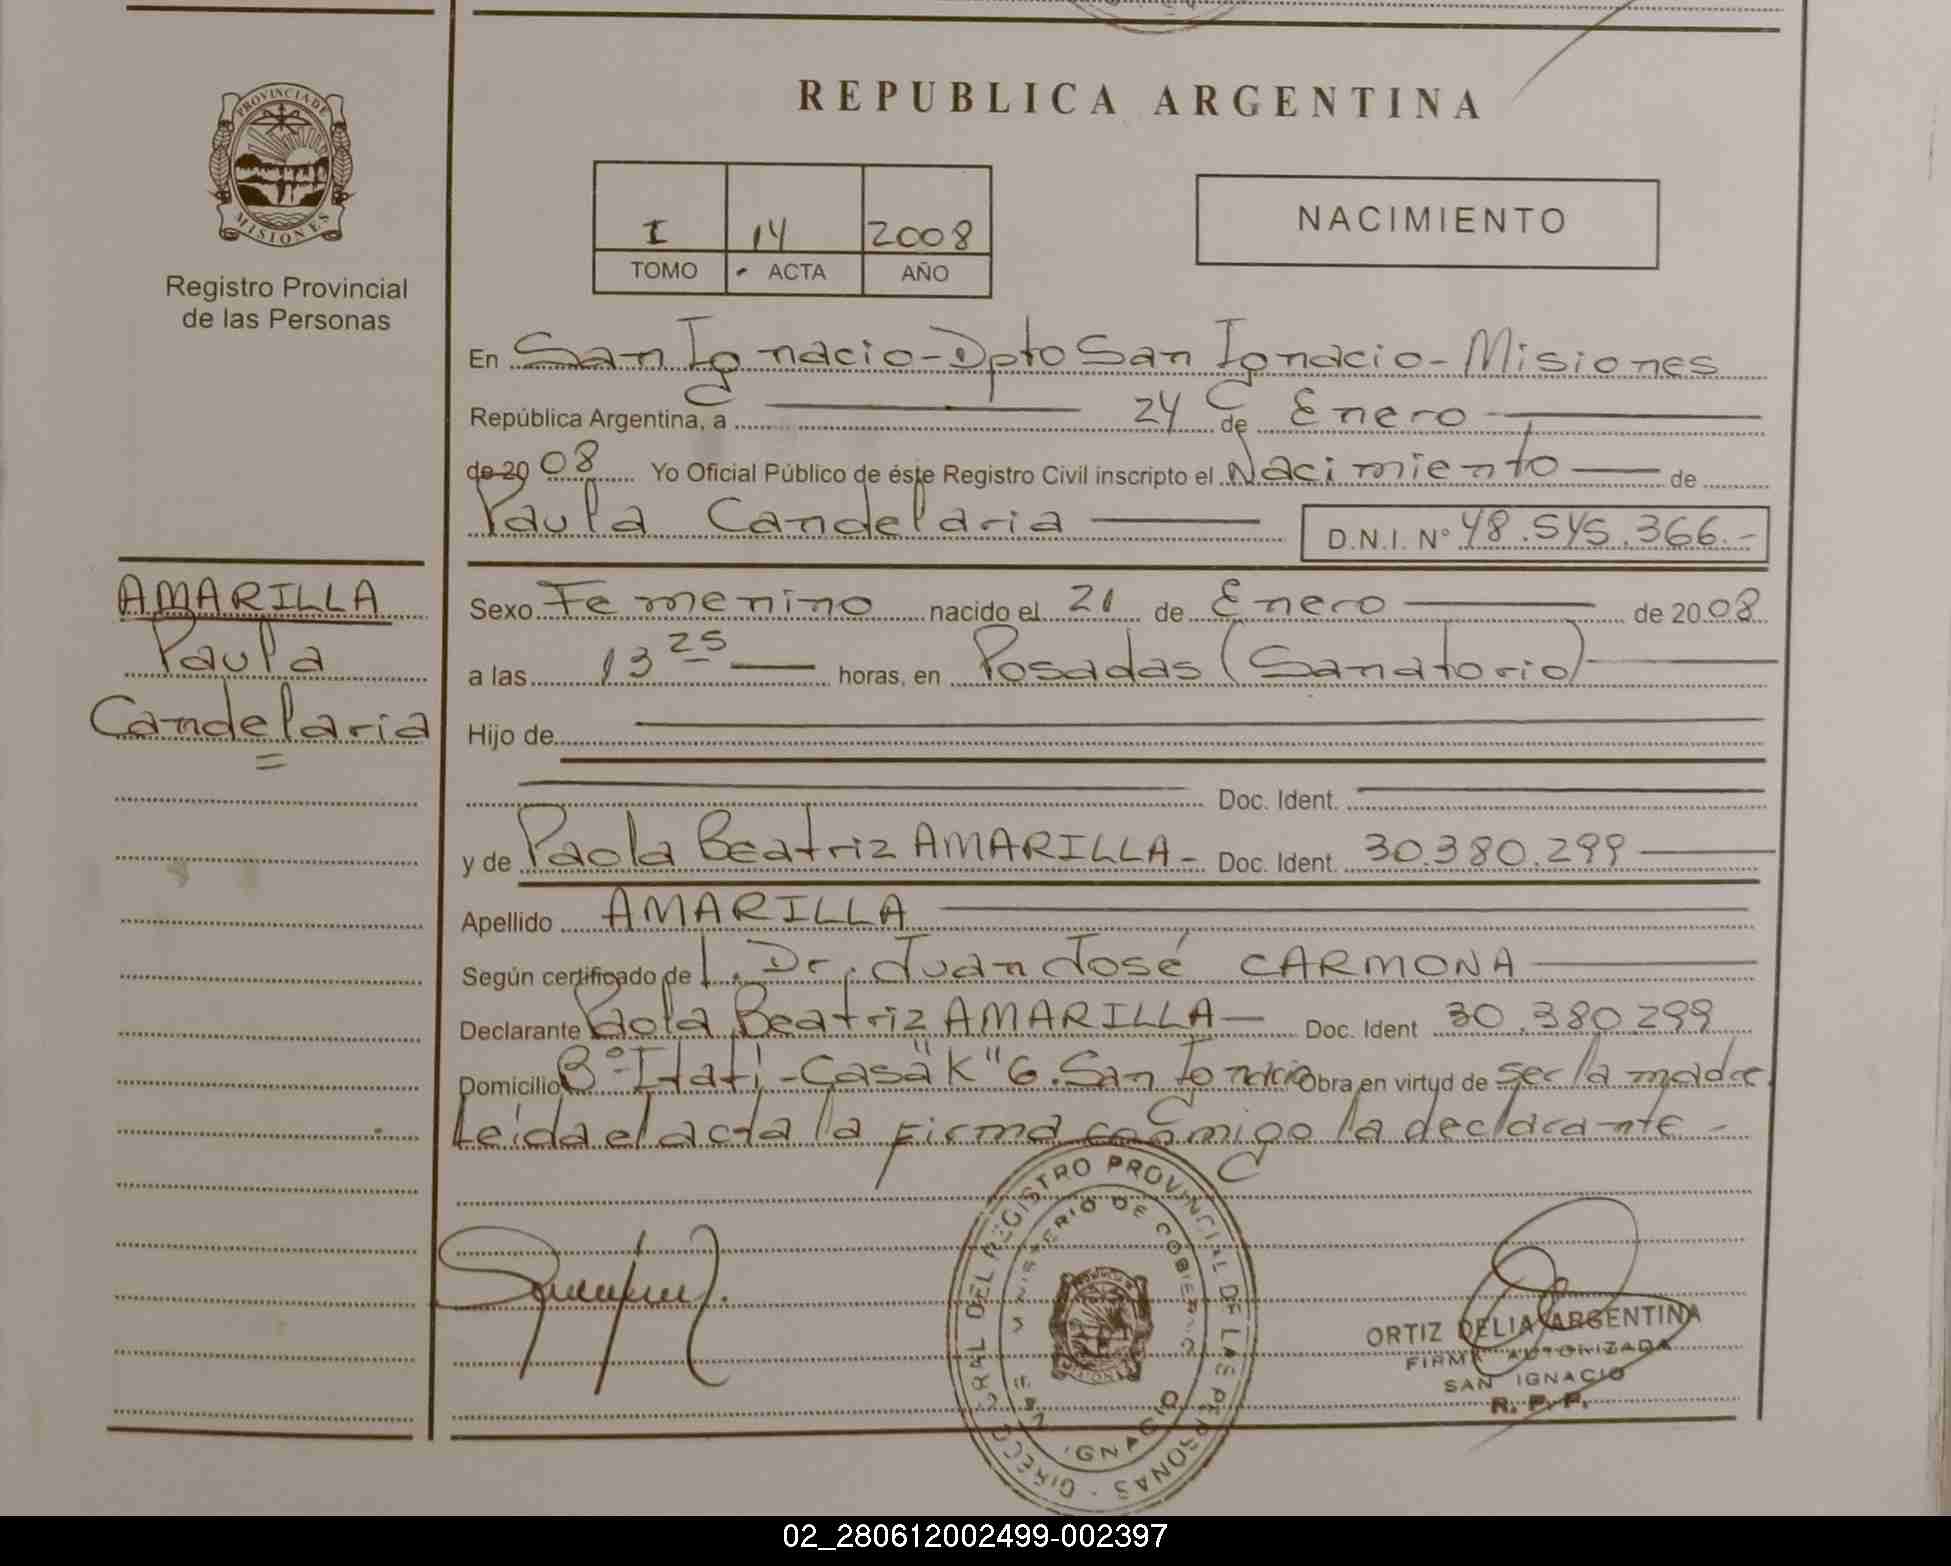 PROVINCIA DE
MISIONES
Registro Provincial
de las Personas
AMARILLA
Paula
Candelaria
REPUBLICA ARGENTINA
I 14 2008
TOMO ACTA AÑO
NACIMIENTO
En San Ignacio - Dpto San Ignacio - Misiones
República Argentina, a 24 de Enero
de 20 08 Yo Oficial Público de éste Registro Civil inscripto el Nacimiento de
Paula Candelaria D.N.I. Nº 48.545.366.-
Sexo Femenino nacido el 21 de Enero de 20 08
a las 13 25 horas, en Posadas (Sanatorio)
Hijo de
Doc. Ident.
y de Paola Beatriz AMARILLA - Doc. Ident. 30.380.299
Apellido AMARILLA
Según certificado de Dr. Juan José CARMONA
Declarante Paola Beatriz AMARILLA Doc. Ident 30.380.299
Domicilio Bº Itatí - Casa "K" 6. San Ignacio Obra en virtud de ser la madre.
Leída el acta la firma conmigo la declarante -
REGISTRO PROVINCIAL DE LAS PERSONAS
ORTIZ DELIA ARGENTINA
FIRMA AUTORIZADA
SAN IGNACIO
R. P. P.
02_280612002499-002397